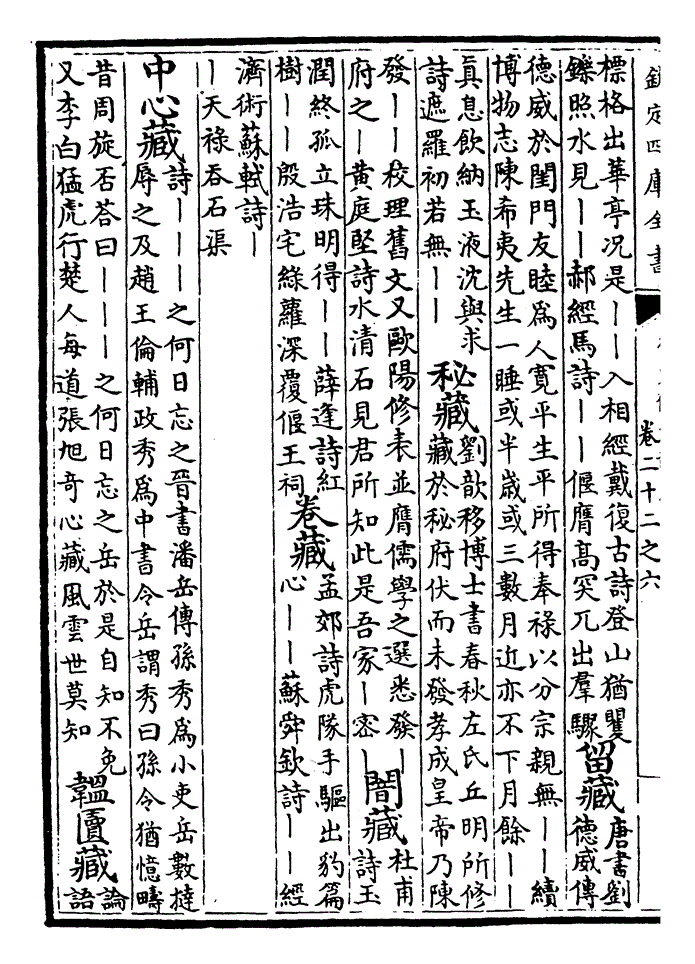 欽定四庫全書
卷二十二之六
標格出華亭况是——入相經戴復古詩登山猶矍
鑠照水見——郝經馬詩——偃膺髙突兀出羣驟
留藏
唐書劉
德威傳
德威於閨門友睦爲人寛平生平所得奉祿以分宗親無——續
博物志陳希夷先生一睡或半嵗或三數月近亦不下月餘——
真息飲納玉液沈與求
詩遮羅初若無——
秘藏
劉歆移博士書春秋左氏丘明所修
藏於秘府伏而未發孝成皇帝乃陳
發——校理舊文又歐陽修表並膺儒學之選悉發—
府之—黄庭堅詩水清石見君所知此是吾家—密—
闇藏
杜甫
詩玉
潤終孤立珠明得——薛逢詩紅
樹——殷浩宅綠蘿深覆偃王祠
卷藏
孟郊詩虎隊手驅出豹篇
心——蘇舜欽詩——經
濟術蘇軾詩—
—天祿吞石渠
中心藏
詩———之何日忘之晉書潘岳傳孫秀爲小吏岳數撻
辱之及趙王倫輔政秀爲中書令岳謂秀曰孫令猶憶疇
昔周旋否荅曰———之何日忘之岳於是自知不免
又李白猛虎行楚人每道張旭奇心藏風雲世莫知
韞匵藏
論
語